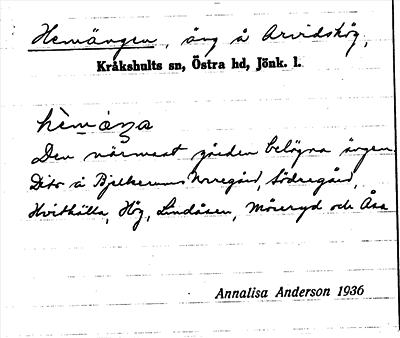 Hemängen, äng å Arvidshög,
Kråkshults sn, Östra hd, Jönk. l.
hèmäŋa
Den närmast gården belägna ängen.
Dito å Bjelkerums Norregård, Södregård,
Hvithälla, Hög, Lindåsen, Möreryd och Åsa
Annalisa Anderson 1936